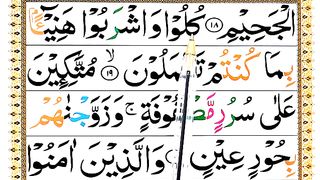 الْجَحِيْمِ ۝۱۸ كُلُوْا وَاشْرَبُوْا هَنِيْٓـًٔۢا
بِمَا كُنْتُمْ تَعْمَلُوْنَ ۙ۝۱۹ مُتَّكِـِٕيْنَ
عَلٰى سُرُرٍ مَّصْفُوْفَةٍ ۚ وَزَوَّجْنٰهُمْ
بِحُوْرٍ عِيْنٍ ۝ وَالَّذِيْنَ اٰمَنُوْا